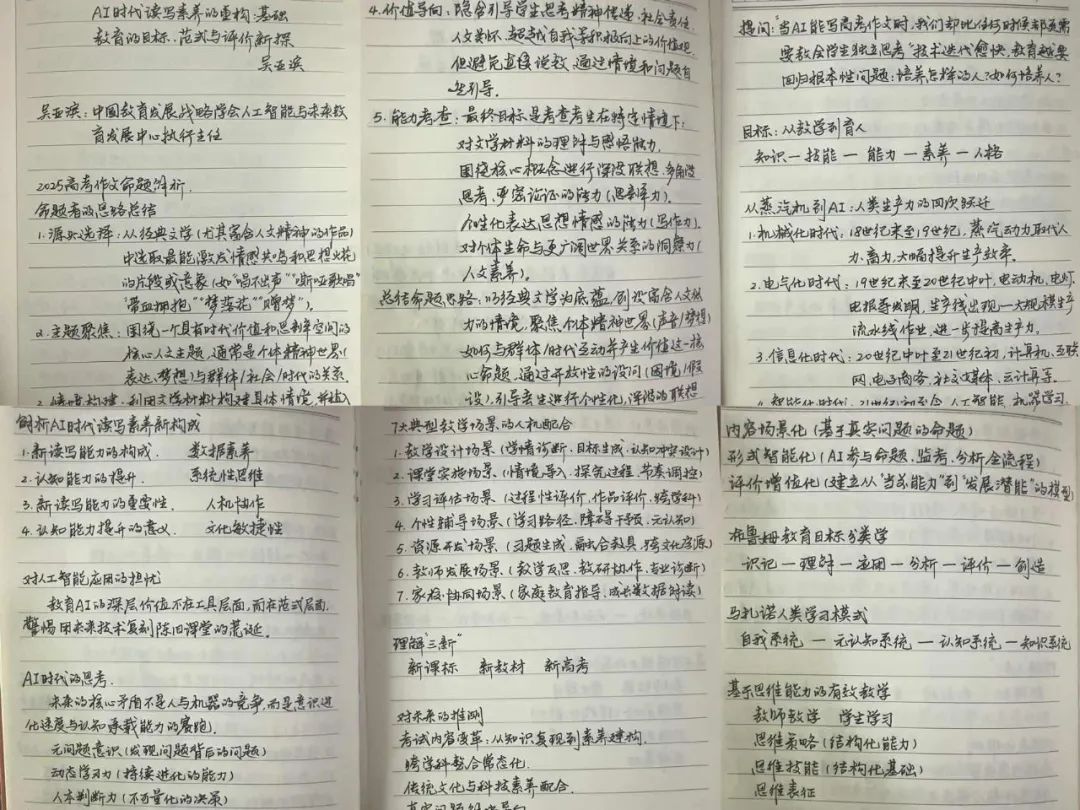 AI时代读写素养的重构:基础
教育的目标、范式与评价新探
吴亚滨
吴亚滨:中国教育发展战略学会人工智能与未来教
育发展中心执行主任
2025高考作文命题解析
命题者的思路总结
1.源头选择:从经典文学(尤其富含人文精神的作品)
中选取最能激发情感共鸣和思想火花
的片段或意象(如"唱不出声""嘶哑歌唱"
"带血拥抱""梦落花""赠梦")。
2.主题聚焦:围绕一个具有时代价值和思辨空间的
核心人文主题,通常是个体精神世界(
表达、梦想)与群体/社会/时代的关系。
4.价值导向:隐含引导学生思考精神传递、社会责任
人文关怀、超越自我等积极向上的价值观
但避免直接说教,通过情境和问题自
然引导。
5.能力考查:最终目标是考查考生在特定情境下:
对文学材料的理解与感悟能力,
围绕核心概念进行深度联想、多角度
思考、严密论证的能力(思辨力)。
个性化表达思想情感的能力(写作力)。
对个体生命与更广阔世界关系的洞察力(
人文素养)。
总结命题思路:以经典文学为底蕴,创设富含人文
力的情境,聚焦个体精神世界(声音/梦想)
如何与群体/时代互动并产生价值这一核
心命题,通过开放性的设问(困境/假
设),引导考生进行个性化、深度的联想
提问:"当AI能写高考作文时,我们却比任何时候都更需
要教会学生独立思考"技术迭代愈快,教育越要
回归根本性问题:培养怎样的人?如何培养人?
目标:从教学到育人
知识—技能—能力—素养—人格
从蒸汽机到AI:人类生产力的四次跃迁
1.机械化时代:18世纪末至19世纪,蒸汽动力取代人
力、畜力,大幅提升生产效率。
2.电气化时代:19世纪末至20世纪中叶,电动机,电灯
电报等发明,生产线出现—大规模生产
流水线作业,进一步提高生产力。
3.信息化时代:20世纪中叶至21世纪初,计算机、互联
网、电子商务、社交媒体、云计算等。
4.智能化时代:21世纪初至今,人工智能、机器学习、
解析AI时代读写素养新构成
1.新读写能力的构成. 数据素养
2.认知能力的提升. 系统性思维
3.新读写能力的重要性. 人机协作
4.认知能力提升的意义. 文化敏捷性
对人工智能应用的担忧
教育AI的深层价值不在工具层面,而在范式层面,
警惕用未来技术复刻陈旧课堂的荒诞。
AI时代的思考.
未来的核心矛盾不是人与机器的竞争,而是意识进
化速度与认知承载能力的赛跑。
元问题意识(发现问题背后的问题)
动态学习力(持续进化的能力)
人本判断力(不可量化的决策)
7大典型教学场景的人机配合
1.教学设计场景(学情诊断、目标生成、认知冲突设计)
2.课堂实施场景(情境导入、探究过程、节奏调控)
3.学习评估场景(过程性评价,作品评价,跨学科)
4.个性辅导场景(学习路径、障碍干预、元认知)
5.资源开发场景(习题生成、融合教具、跨文化资源)
6.教师发展场景(教学反思、教研协作、专业诊断)
7.家校协同场景(家庭教育指导、成长数据解读)
理解"三新"
新课标 新教材 新高考
对未来的推测
考试内容变革:从知识复现到素养建构.
跨学科整合常态化.
传统文化与科技素养配合.
内容场景化(基于真实问题的命题)
形式智能化(AI参与命题、监考、分析全流程)
评价增值化(建立从"当前能力"到"发展潜能"的模型
布鲁姆教育目标分类学
识记—理解—应用—分析—评价—创造
马扎诺人类学习模式
自我系统—元认知系统—认知系统—知识系统
基于思维能力的有效教学
教师教学 学生学习
思维策略(结构化能力)
思维技能(结构化基础)
思维表征